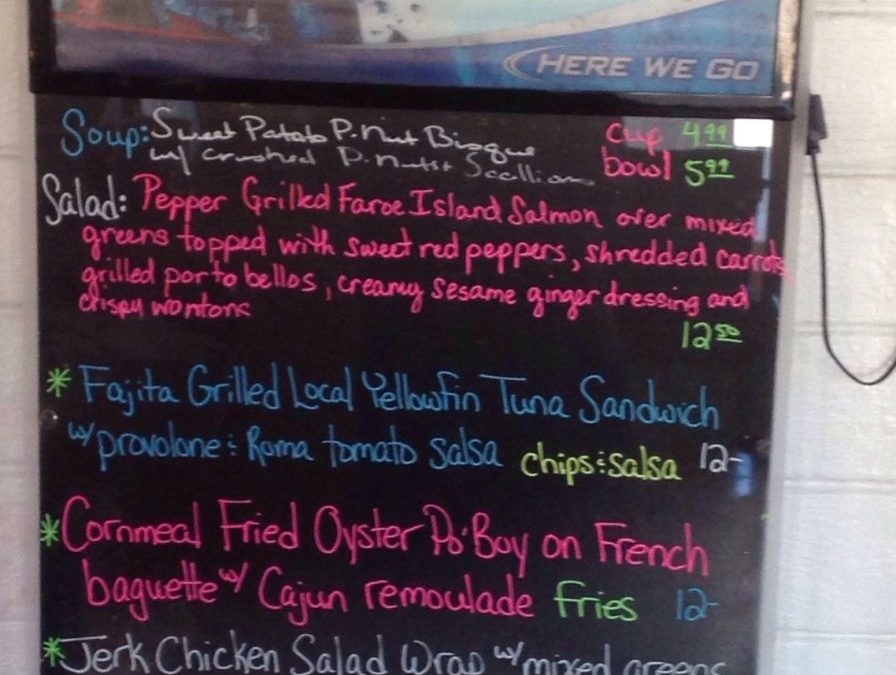 HERE WE GO
Soup: Sweet Patato P.Nut Bisque cup 4.99
w/ crushed P.nuts + Scallions bowl 5.99
Salad: Pepper Grilled Faroe Island Salmon over mixed
greens topped with sweet red peppers, shredded carrots,
grilled portobellos, creamy sesame ginger dressing and
crispy wontons
12.50
* Fajita Grilled Local Yellowfin Tuna Sandwich
w/ provolone & Roma tomato salsa chips & salsa 12-
* Cornmeal Fried Oyster Po'Boy on French
baguette w/ Cajun remoulade fries 12-
* Jerk Chicken Salad Wrap w/ mixed greens